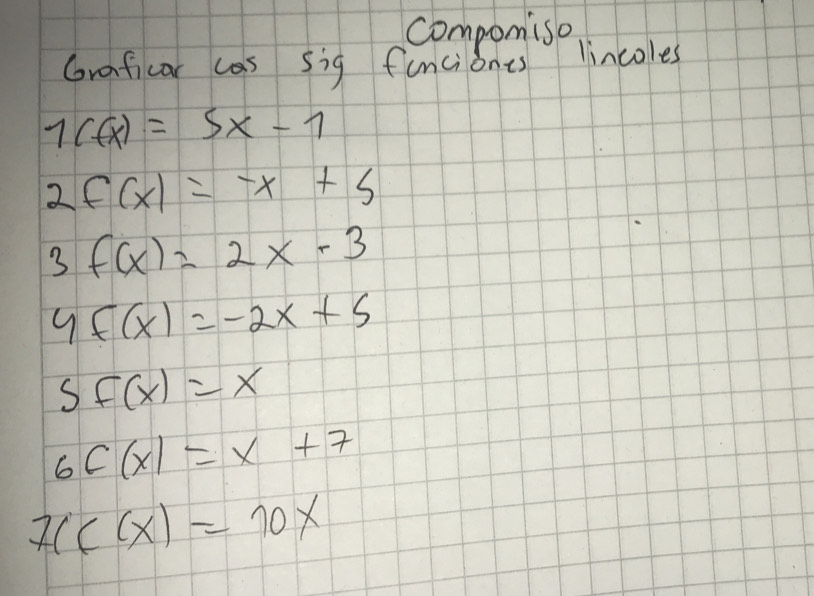 Compomiso
Graficar las sig funciones lineales
1 f(x) = 5x - 1
2 f(x) = -x + 5
3 f(x) = 2x - 3
4 f(x) = -2x + 5
5 f(x) = x
6 f(x) = x + 7
7 f(x) = 10x